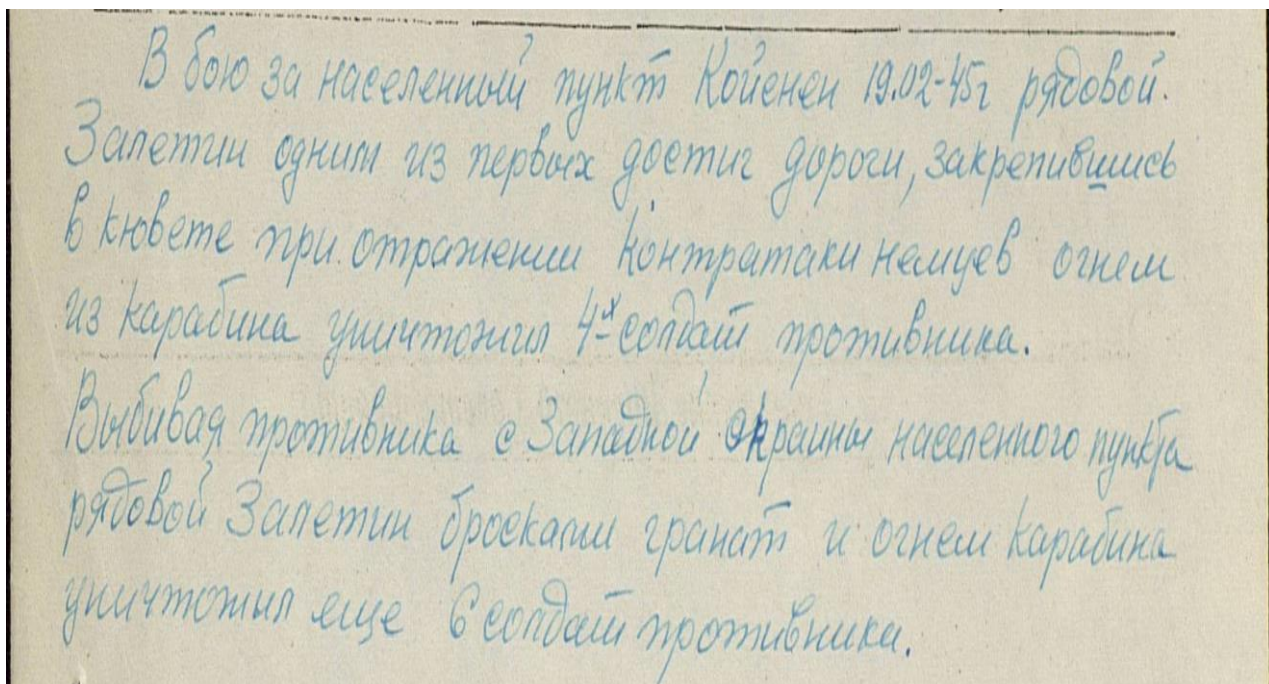 В бою за населенный пункт Койенен 19.02-45г рядовой.
Залетин одним из первых достиг дороги, закрепившись
в кювете при отражении контратаки немцев огнем
из карабина уничтожил 4х солдат противника.
Выбивая противника с Западной окраины населенного пункта
рядовой Залетин бросками гранат и огнем карабина
уничтожил еще 6 солдат противника.